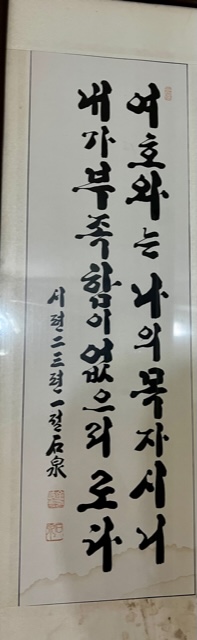 여호와는 나의 목자시니
내가 부족함이 없으리로다
시편 二三편 一절 石泉